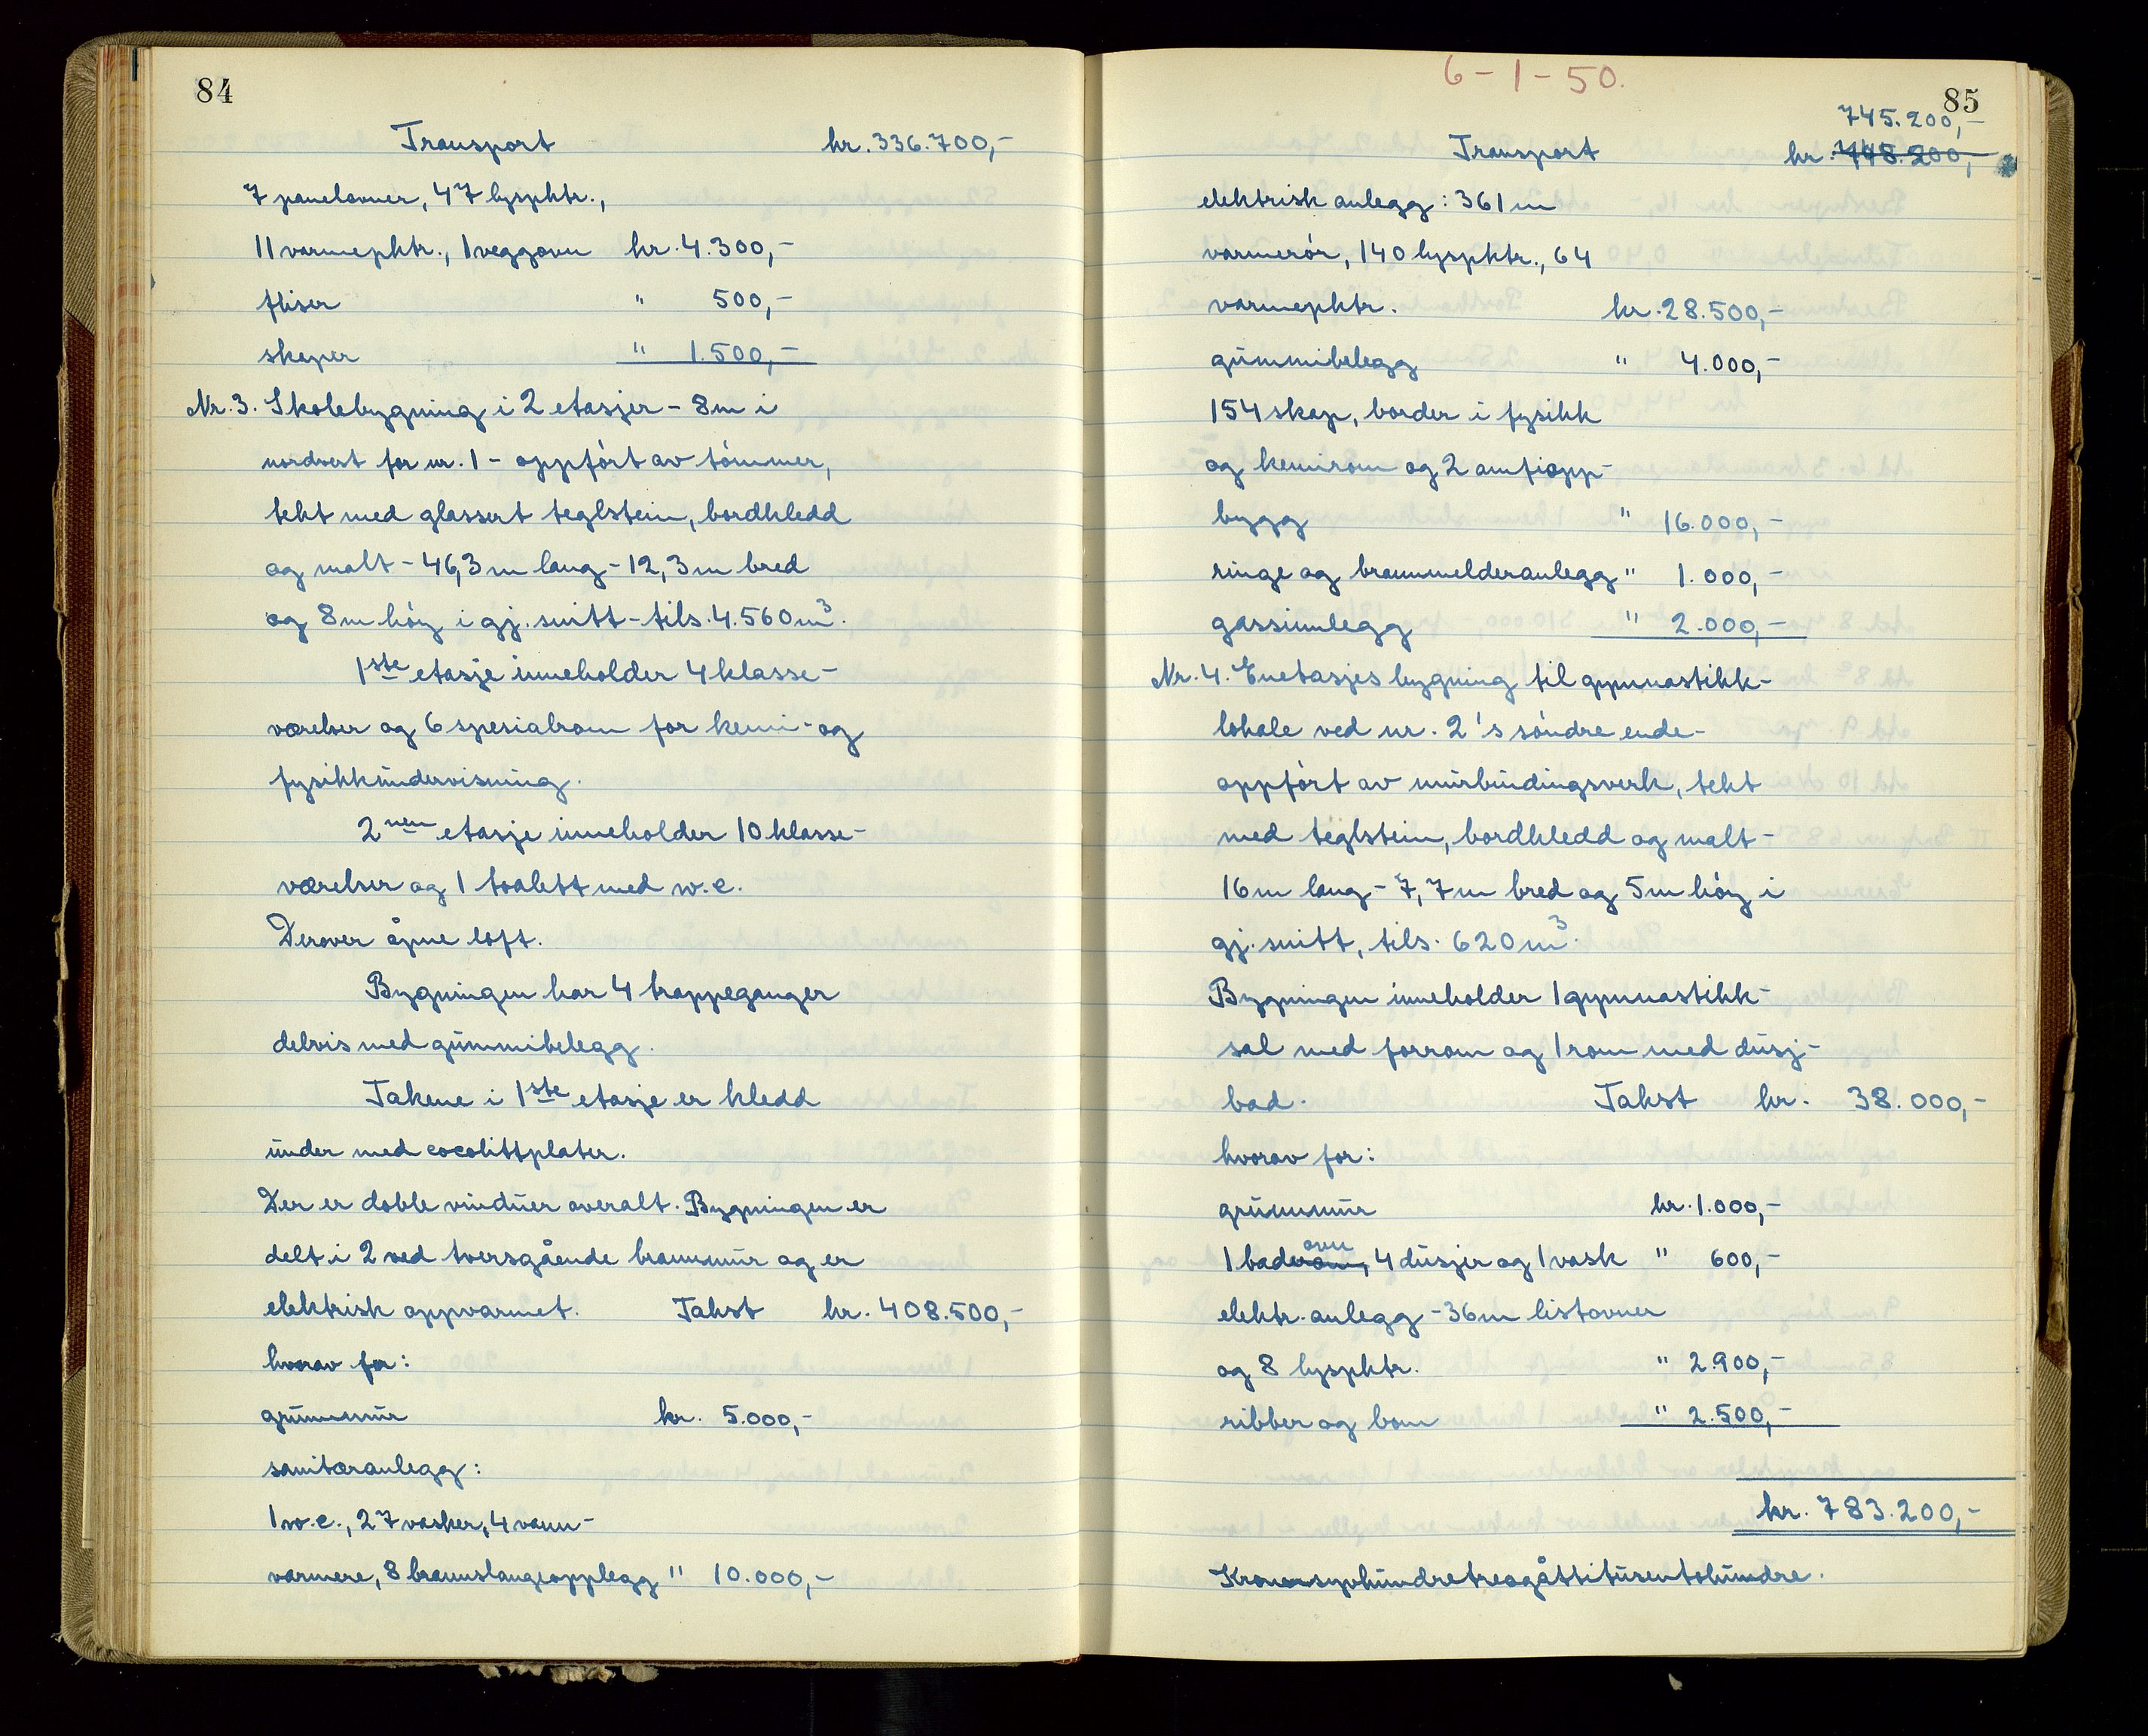 84
Transport kr. 336.700,-
7 panelovner, 47 lyspktr.,
11 varmepktr., 1 veggovn kr. 4.300,-
fliser " 500,-
skaper " 1.500,-
Nr. 3. Skolebygning i 2 etasjer - 8m i
nordvest for nr. 1 - oppført av tømmer,
tekt med glassert teglstein, bordkledd
og malt - 46,3m lang - 12,3m bred
og 8m høy i gj.snitt - tils. 4.560m³.
1ste etasje inneholder 4 klasse-
værelser og 6 spesialrom for kemi- og
fysikkundervisning.
2nen etasje inneholder 10 klasse-
værelser og 1 toalett med w.c.
Derover åpne loft.
Bygningen har 4 trappeganger
delvis med gummibelegg.
Takene i 1ste etasje er kledd
under med cocolittplater.
Der er doble vinduer overalt. Bygningen er
delt i 2 ved tversgående brannmur og er
elektrisk oppvarmet. Takst kr. 408.500,-
hvorav for:
grunnmur kr. 5.000,-
sanitæranlegg:
1 w.c., 27 vasker, 4 vann-
varmere, 8 brannslangeopplegg " 10.000,-
6-1-50.
85
745.200,-
Transport kr. 748.200,-
elektrisk anlegg: 361m
varmerör, 140 lyspktr., 64
varmepktr. kr. 28.500,-
gummibelegg " 4.000,-
154 skap, border i fysikk
og kemirom og 2 amfiopp-
bygg " 16.000,-
ringe og brannmelderanlegg " 1.000,-
gassinnlegg " 2.000,-
Nr. 4. Enetasjes bygning til gymnastikk-
lokale ved nr. 2's søndre ende-
oppført av murbindingsverk, tekt
med teglstein, bordkledd og malt-
16m lang - 7,7m bred og 5m høy i
gj.snitt, tils. 620m³.
Bygningen inneholder 1 gymnastikk-
sal med forrom og 1 rom med dusj-
bad. Takst kr. 38.000,-
hvorav for:
grunnmur kr. 1.000,-
ovn
1 baderom, 4 dusjer og 1 vask " 600,-
elektr. anlegg - 36m listovner
og 8 lyspktr. " 2.900,-
ribber og bom " 2.500,-
kr. 783.200,-
Kronersyvhundretreogåttitusentohundre.